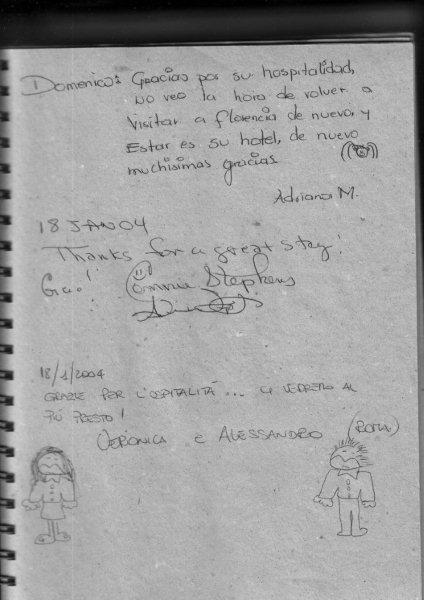 Domenico: Gracias por su hospitalidad,
no veo la hora de volver a
visitar a florencia de nuevo y
Estar es su hotel, de nuevo
muchisimas gracias
Adriana M.
18 JAN 04
Thanks for a great stay!
Connie Stephens
18/1/2004
GRAZIE PER L'OSPITALITÀ... CI VEDREMO AL
PIÙ PRESTO!
VERONICA E ALESSANDRO (ROMA)